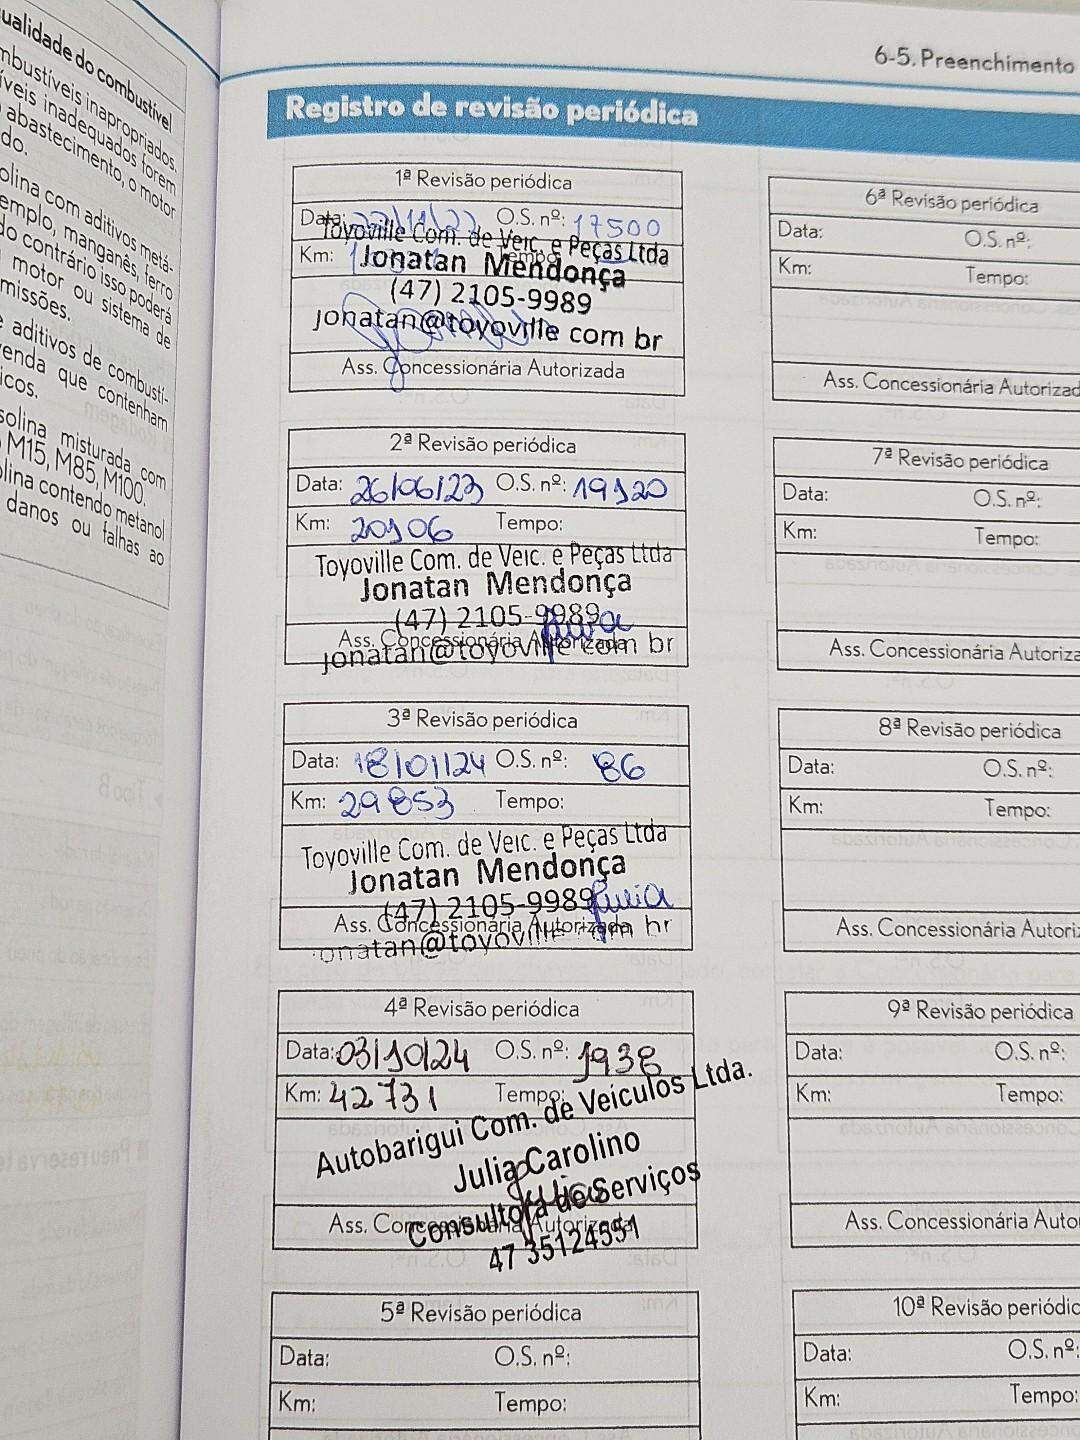 qualidade do combustível
mbustíveis inapropriados.
íveis inadequados forem
abastecimento, o motor
do.
olina com aditivos metá-
emplo, manganês, ferro
do contrário isso poderá
motor ou sistema de
missões.
e aditivos de combustí-
venda que contenham
icos.
solina misturada com
M15, M85, M100.
olina contendo metanol
danos ou falhas ao
6-5. Preenchimento
Registro de revisão periódica
1ª Revisão periódica
Data: 22/11/22 O.S. nº: 17500
Toyoville Com. de Veic. e Peças Ltda
Km:
Jonatan Mendonça
(47) 2105-9989
jonatan@toyoville com br
Ass. Concessionária Autorizada
2ª Revisão periódica
Data: 26/06/23 O.S. nº: 19120
Km: 20106 Tempo:
Toyoville Com. de Veic. e Peças Ltda
Jonatan Mendonça
(47) 2105-9989
Ass. Concessionária Autorizada
jonatan@toyoville com br
3ª Revisão periódica
Data: 18/01/24 O.S. nº: 86
Km: 29853 Tempo:
Toyoville Com. de Veic. e Peças Ltda
Jonatan Mendonça
(47) 2105-9989
Ass. Concessionária Autorizada
jonatan@toyoville com br
4ª Revisão periódica
Data: 03/10/24 O.S. nº: 1938
Km: 42731 Tempo:
Autobarigui Com. de Veículos Ltda.
Julia Carolino
Consultora de Serviços
Ass. Concessionária Autorizada
47 35124551
5ª Revisão periódica
Data: O.S. nº:
Km: Tempo:
6ª Revisão periódica
Data: O.S. nº:
Km: Tempo:
Ass. Concessionária Autorizad
7ª Revisão periódica
Data: O.S. nº:
Km: Tempo:
Ass. Concessionária Autoriza
8ª Revisão periódica
Data: O.S. nº:
Km: Tempo:
Ass. Concessionária Autoriz
9ª Revisão periódica
Data: O.S. nº:
Km: Tempo:
Ass. Concessionária Auto
10ª Revisão periódic
Data: O.S. nº:
Km: Tempo: